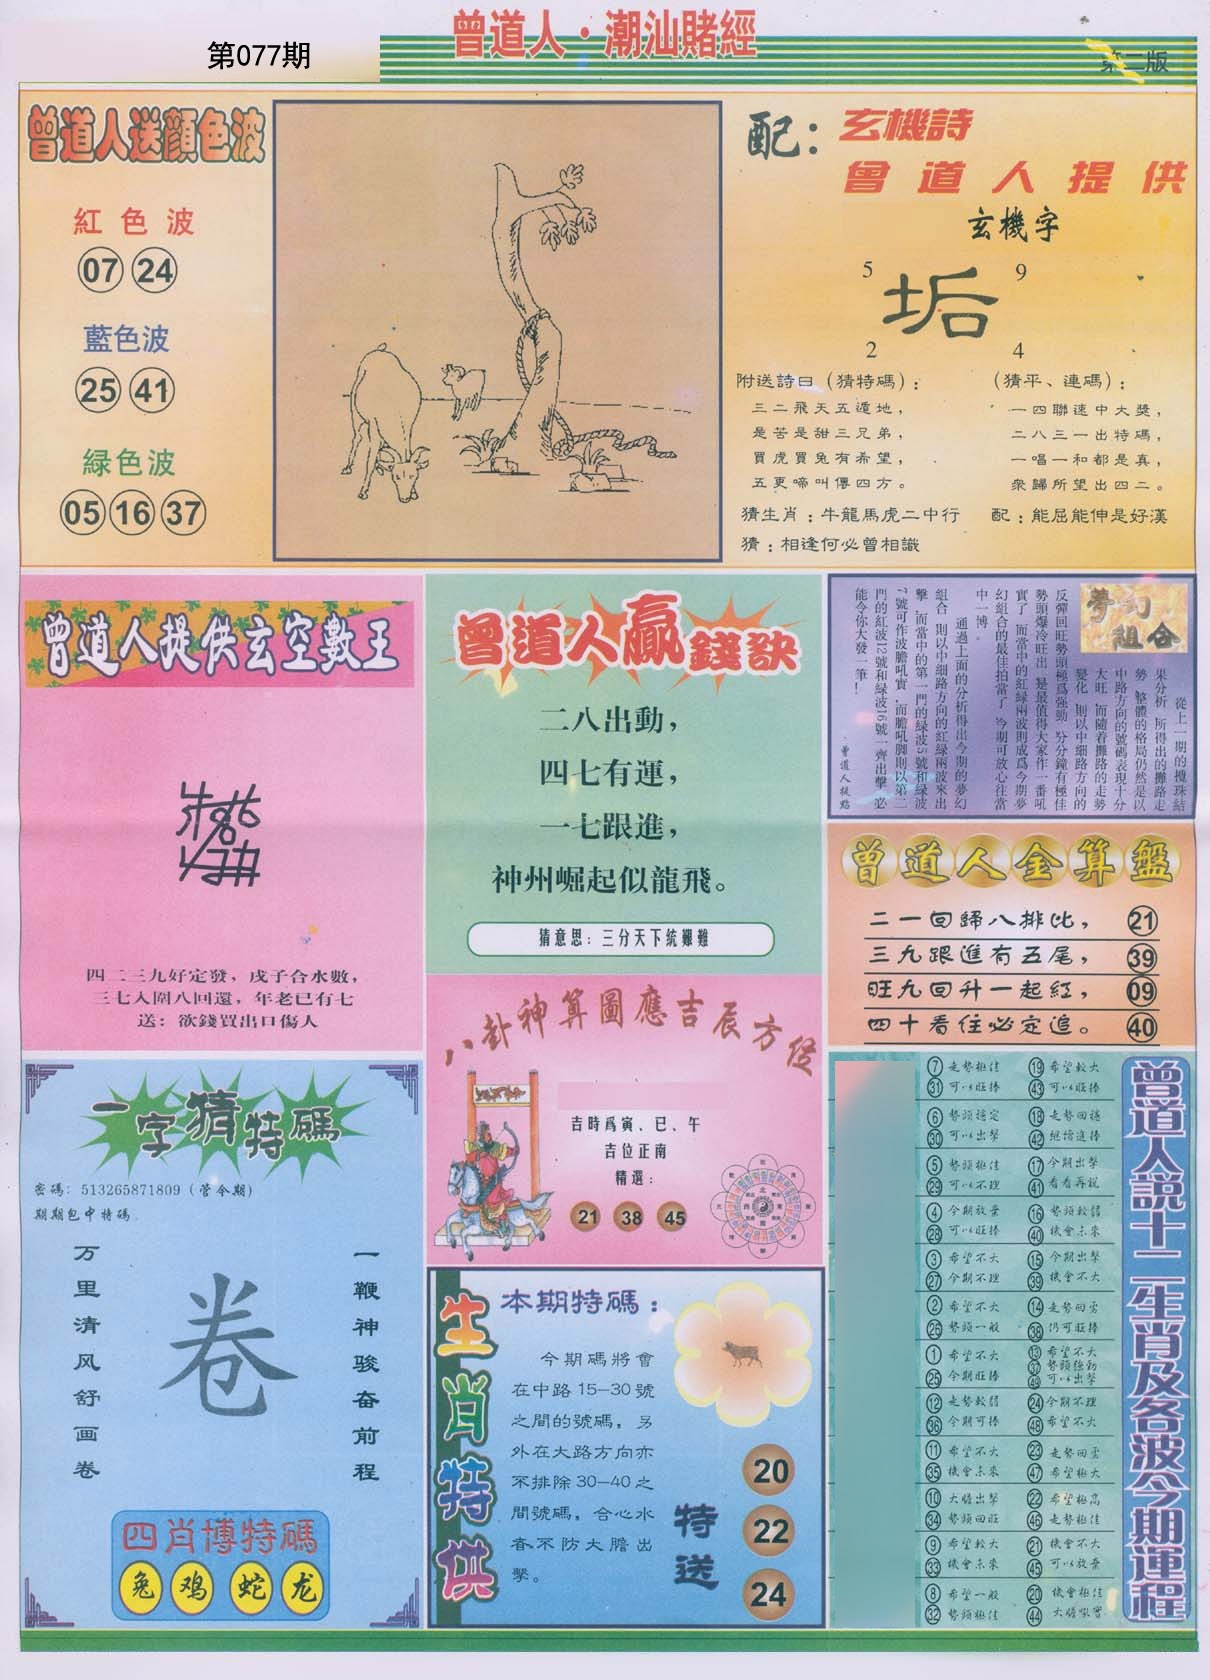 曾道人·潮汕賭經
第077期
第二版
曾道人送顔色波
紅色波
07 24
藍色波
25 41
緑色波
05 16 37
配：玄機詩
曾道人提供
玄機字
5 9
垢
2 4
附送詩曰（猜特碼）：
三二飛天五遁地，
是苦是甜三兄弟，
買虎買兔有希望，
五更啼叫傳四方。
猜生肖：牛龍馬虎二中行
猜：相逢何必曾相識
（猜平、連碼）：
一四聯速中大獎，
二八三一出特碼，
一唱一和都是真，
衆歸所望出四二。
配：能屈能伸是好漢
曾道人提供玄空數王
四二三九好定發，戌子合水數，
三七入圍八回還，年老已有七
送：欲錢買出口傷人
曾道人贏錢訣
二八出動，
四七有運，
一七跟進，
神州崛起似龍飛。
猜意思：三分天下統艱難
夢幻
組合
從上一期的攪珠結
果分析，所得出的攤路走
勢，整體的格局仍然是以
中路方向的號碼表現十分
大旺，而隨着攤路的走勢
變化，則以中細路方向的
反彈回旺勢頭極爲強勁，分分鐘有極佳
勢頭爆冷旺出，是最值得大家作一番吼
實了，而當中的紅緑兩波則成爲今期夢
幻組合的最佳拍當了，今期可放心往當
中一博。
通過上面的分析得出今期的夢幻
組合，則以中細路方向的紅緑兩波來出
擊，而當中的第一門的緑波5號和緑波
7號可作波膽吼實，而膽吼脚則以第二
門的紅波12號和緑波16號一齊出擊，必
能令你大發一筆！
·曾道人提點
曾道人金算盤
二一回歸八排比， 21
三九跟進有五尾， 39
旺九回升一起紅， 09
四十看住必定追。 40
八卦神算圖應吉辰方位
吉時爲寅、巳、午
吉位正南
精選：
21 38 45
一字猜特碼
密碼：513265871809（管今期）
期期包中特碼.
万里清风舒画卷
卷
一鞭神骏奋前程
四肖博特碼
兔 鸡 蛇 龙
生肖特供
本期特碼：
今期碼將會
在中路15—30號
之間的號碼，另
外在大路方向亦
不排除30—40之
間號碼，合心水
者不防大膽出
擊。
特送
20
22
24
曾道人説十二生肖及各波今期運程
7 走勢極佳 19 希望較大
31 可以旺捧 43 可以旺捧
6 勢頭穩定 18 走勢回穩
30 可以出擊 42 繼續追捧
5 勢頭極佳 17 今期出擊
29 可以不理 41 看看再説
4 今期放棄 16 勢頭較弱
28 可以旺捧 40 機會未來
3 希望不大 15 今期出擊
27 今期不理 39 機會不大
2 希望不大 14 走勢回勇
26 勢頭一般 38 仍可旺捧
1 希望不大 13 希望不大
25 今期旺捧 37 勢頭強勁
49 可以出擊
12 走勢較弱 24 今期不理
36 今期可捧 48 希望不大
11 希望不大 23 走勢回勇
35 機會未來 47 希望極大
10 大膽出擊 22 希望極高
34 勢頭回旺 46 走勢極佳
9 希望不大 21 機會不大
33 機會未來 45 可以放棄
8 希望一般 20 機會極佳
32 勢頭極佳 44 大膽吼實